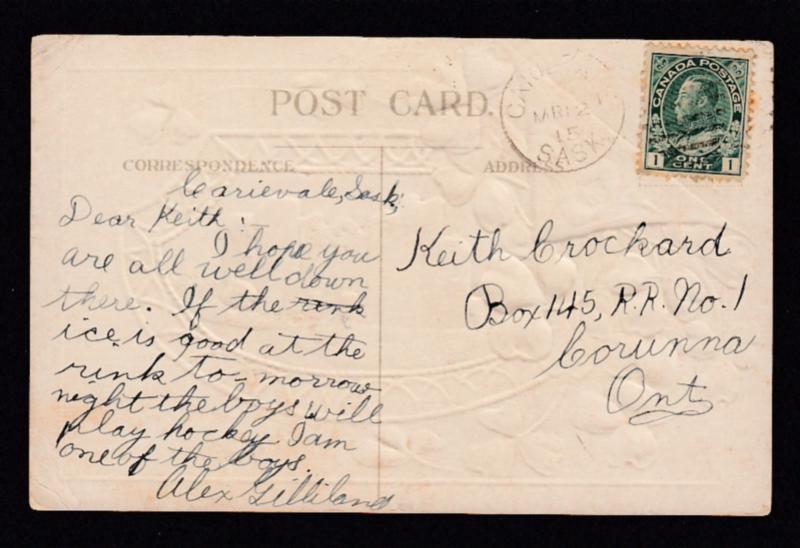 POST CARD.
MR 12
15
SASK.
CANADA POSTAGE
1 ONE CENT 1
CORRESPONDENCE
ADDRESS
Carievale, Sask,
Dear Keith:
I hope you
are all well down
there. If the rink
ice is good at the
rink to-morrow
night the boys will
play hockey I am
one of the boys.
Alex Gilliland
Keith Crockard
Box 145, R.R. No. 1
Corunna
Ont